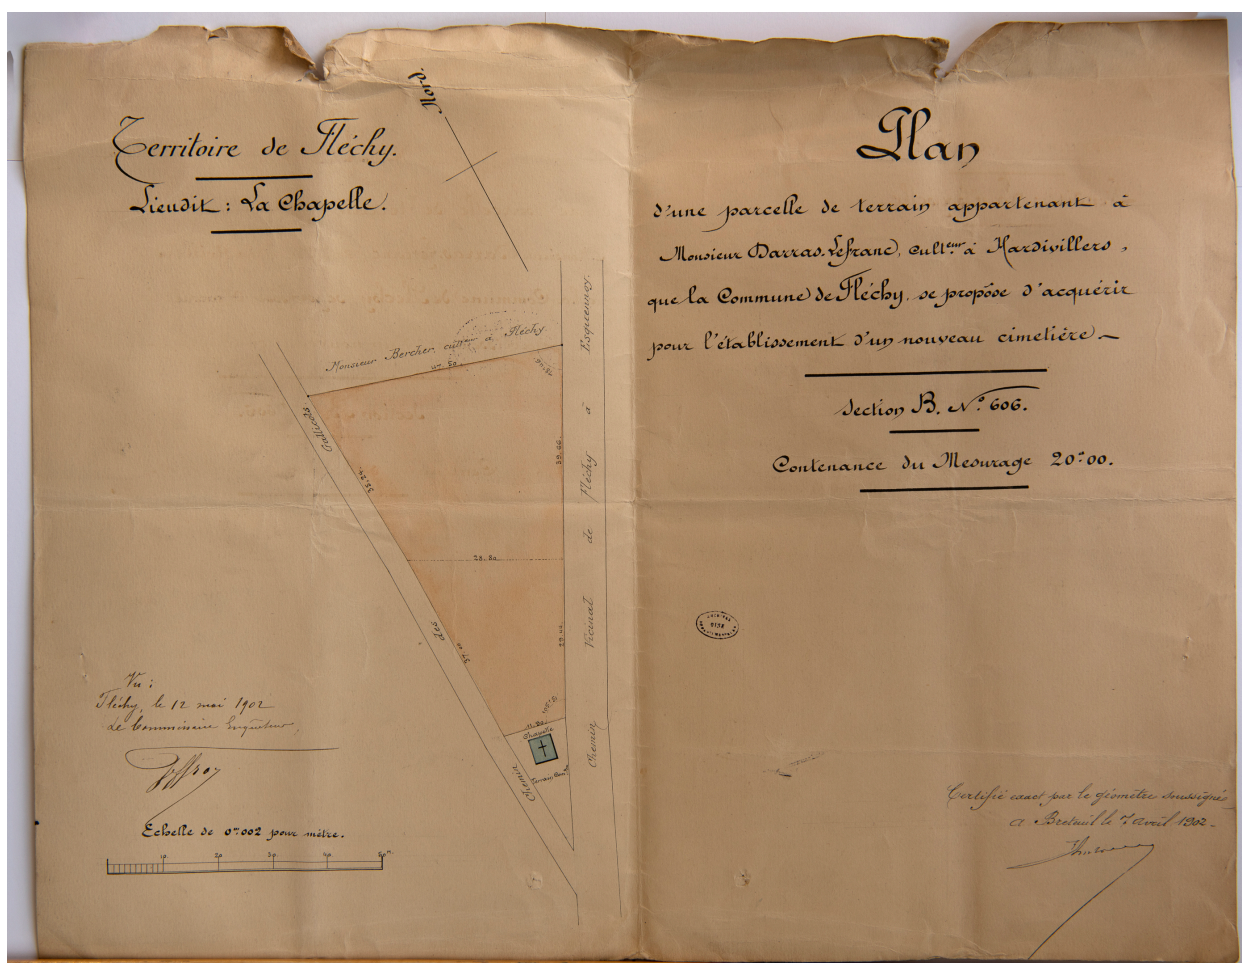 Territoire de Fléchy.
Lieudit : La Chapelle.
Nord.
Monsieur Bercher, culteur à Fléchy.
Gallicots
35.24.
39.66
28.80.
37.
Chemin des
Chemin Vicinal de Fléchy à Esquennoy.
11.80.
Chapelle
Vu :
Fléchy, le 12 mai 1902
Le Commissaire Enquêteur,
Echelle de 0m002 pour mètre.
10. 20 30. 40. 50m.
Plan
d'une parcelle de terrain appartenant à
Monsieur Darras-Lefranc, culteur à Hardivillers,
que la Commune de Fléchy, se propose d'acquérir
pour l'établissement d'un nouveau cimetière.
Section B. No 606.
Contenance du Mesurage 20a00.
Certifié exact par le géomètre soussigné
a Breteuil le 7 avril 1902-